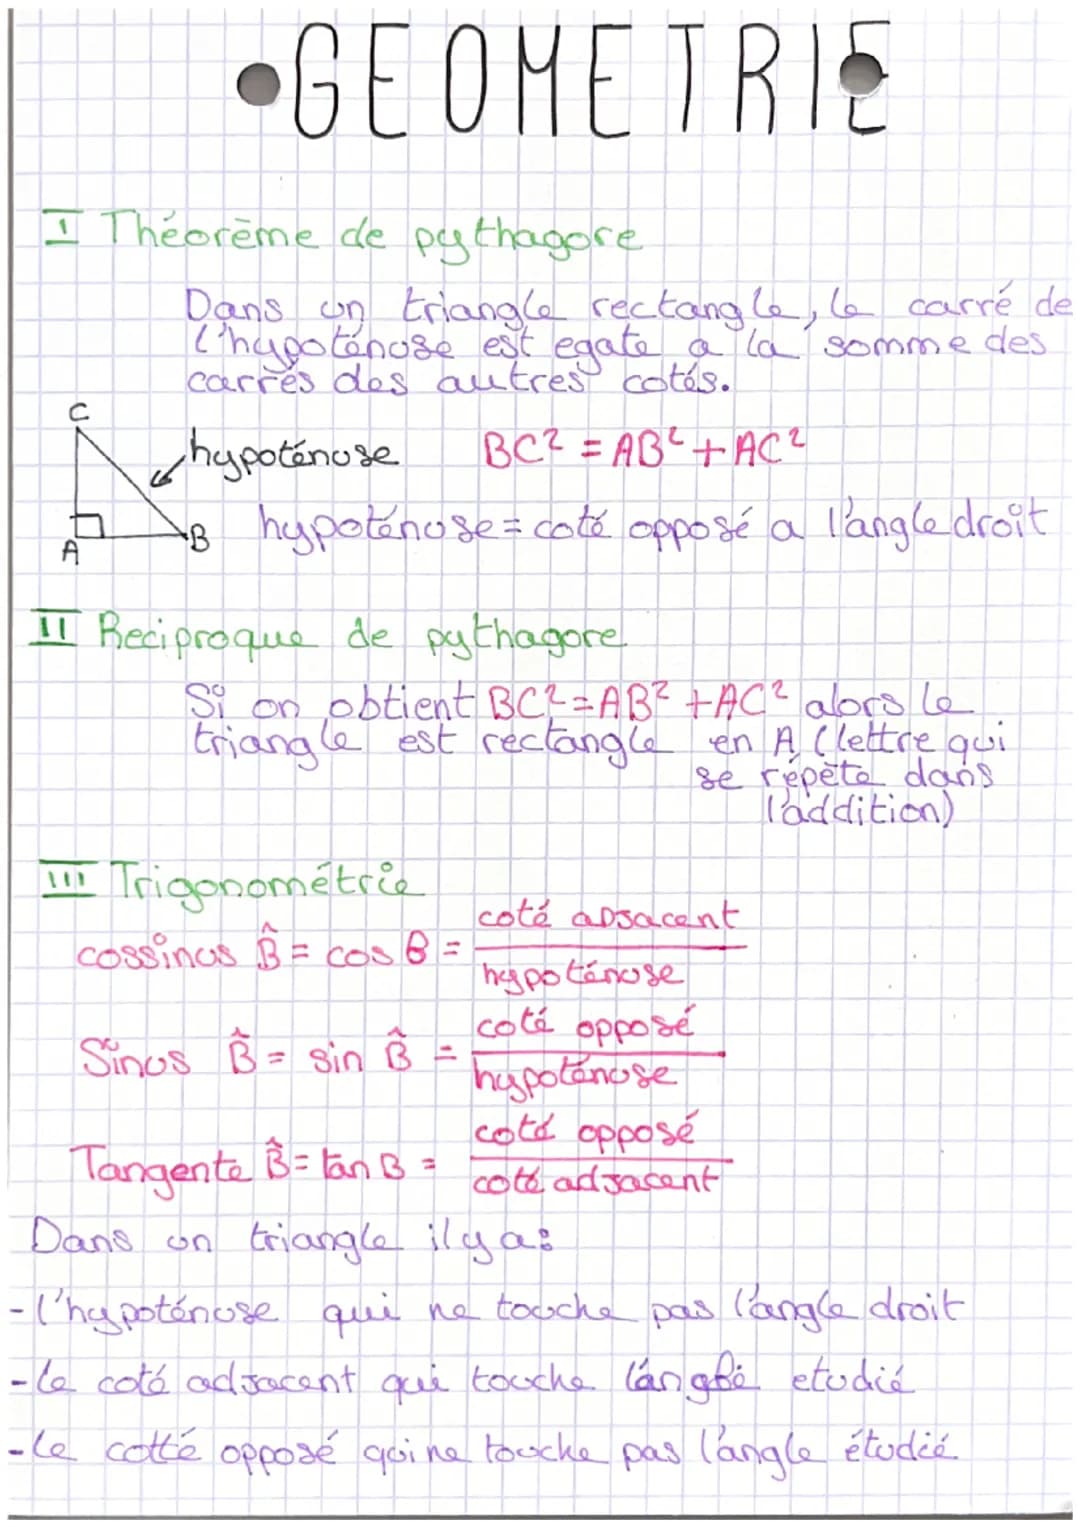 •GEOMETRIE
I Théorème de pythagore
Dans un triangle rectangle, le carré de
l'hypoténuse est egate a la somme des
carrés des autres cotés.
C
hypoténuse BC² = AB² + AC²
A B hypoténuse = coté opposé a l'angle droit
II Reciproque de pythagore
Si on obtient BC² = AB² + AC² alors le
triangle est rectangle en A (lettre qui
se répète dans
l'addition)
III Trigonométrie
coté adjacent
cossinus B̂ = cos B =
hypoténuse
coté opposé
Sinus B̂ = sin B̂ =
hypoténuse
coté opposé
Tangente B̂ = tan B =
coté adjacent
Dans un triangle il y a:
- l'hypoténuse qui ne touche pas l'angle droit
- le coté adjacent qui touche etudié
- le cotté opposé qui ne touche pas l'angle étudié